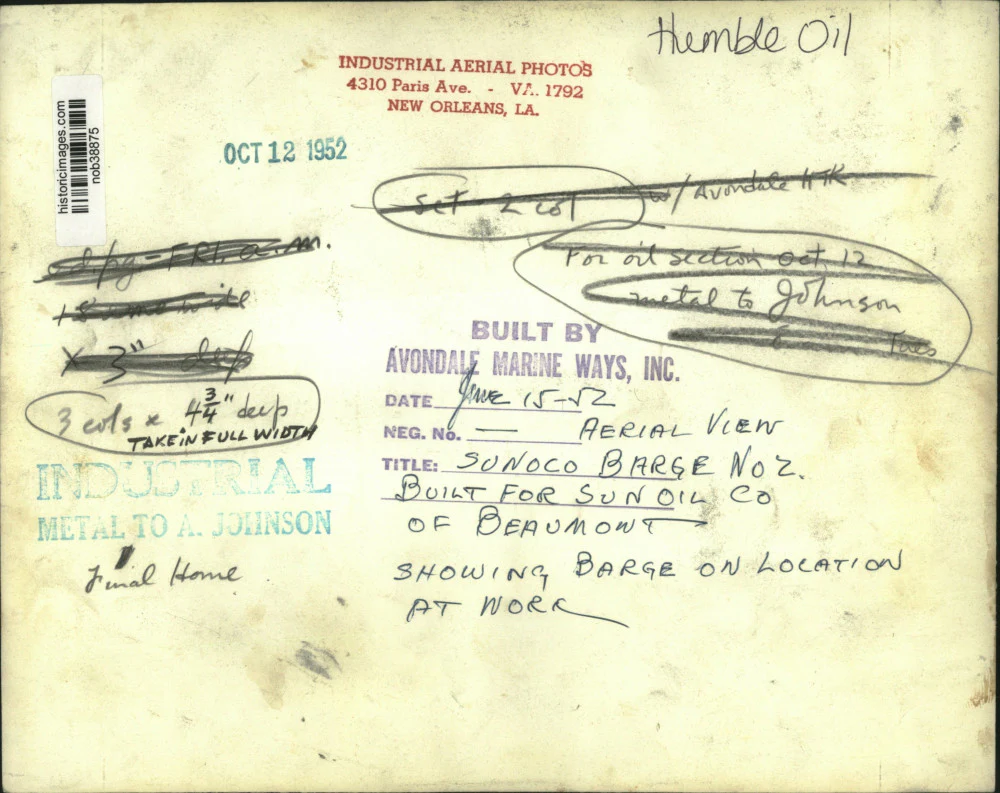 Humble Oil
INDUSTRIAL AERIAL PHOTOS
4310 Paris Ave. - VA. 1792
NEW ORLEANS, LA.
historicimages.com
nob38875
OCT 12 1952
Set 2 col w/ Avondale HTK
FRI. a.m.
For oil section Oct. 12
metal to Johnson
Tues
wide
x 3" deep
3 cols x 4 3/4" deep
TAKE IN FULL WIDTH
INDUSTRIAL
METAL TO A. JOHNSON
Final Home
BUILT BY
AVONDALE MARINE WAYS, INC.
DATE June 15-52
NEG. No. — AERIAL VIEW
TITLE: SUNOCO BARGE NO 2.
BUILT FOR SUN OIL CO
OF BEAUMONT
SHOWING BARGE ON LOCATION
AT WORK